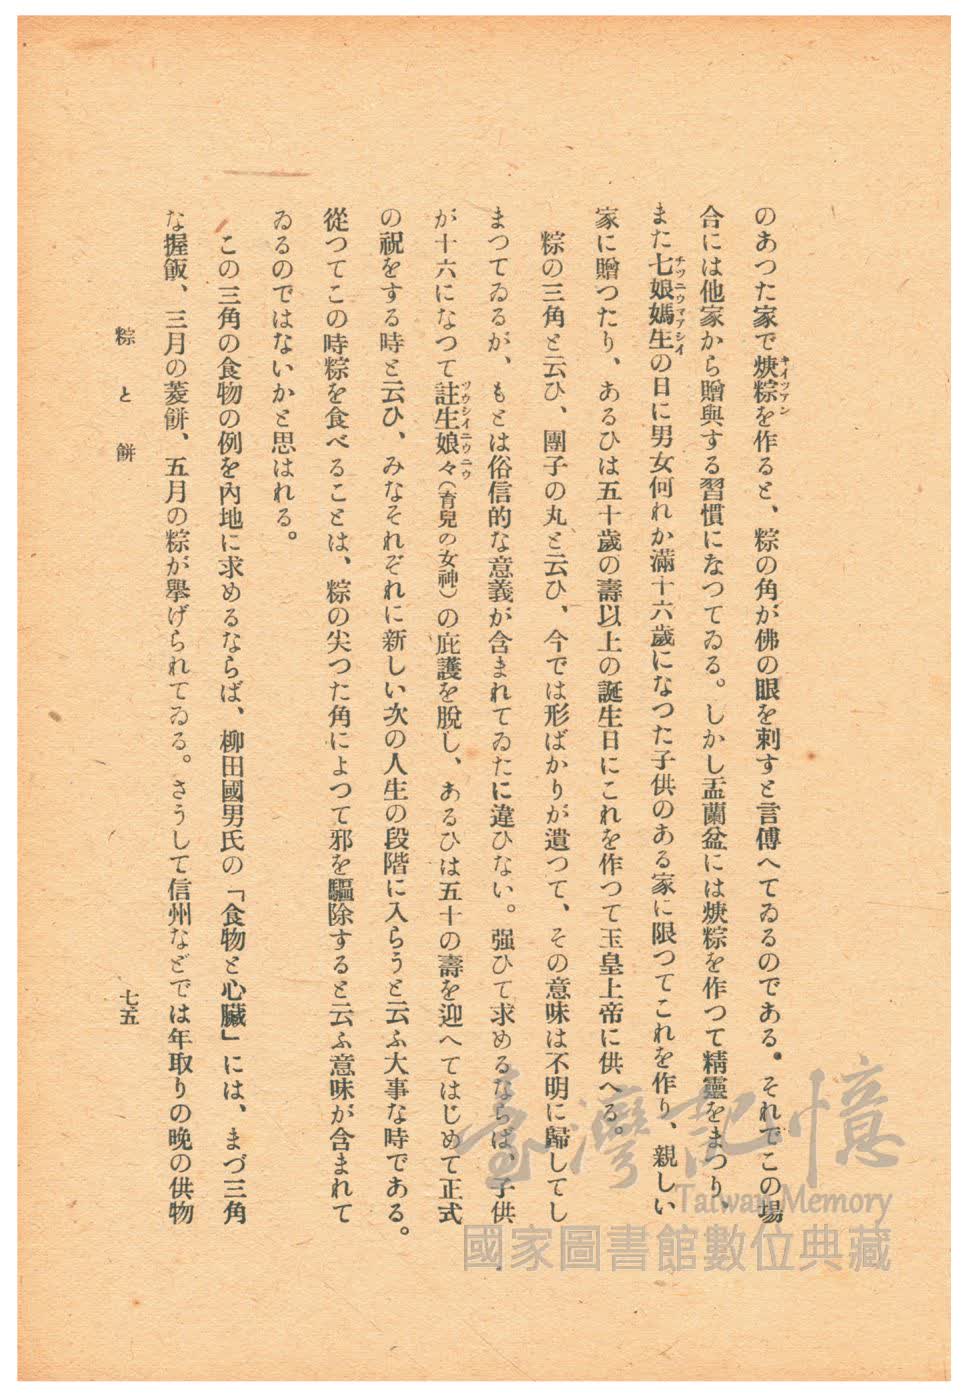 のあつた家で焿粽を作ると、粽の角が佛の眼を刺すと言傳へてゐるのである。それでこの場
キイツアン
合には他家から贈與する習慣になつてゐる。しかし盂蘭盆には焿粽を作つて精靈をまつり、
また七娘媽生の日に男女何れか滿十六歲になつた子供のある家に限つてこれを作り、親しい
チツニウマアシイ
家に贈つたり、あるひは五十歲の壽以上の誕生日にこれを作つて玉皇上帝に供へる。
粽の三角と云ひ、團子の丸と云ひ、今では形ばかりが遺つて、その意味は不明に歸してし
まつてゐるが、もとは俗信的な意義が含まれてゐたに違ひない。强ひて求めるならば、子供
が十六になつて註生娘々(育兒の女神)の庇護を脫し、あるひは五十の壽を迎へてはじめて正式
ツウシイニウニウ
の祝をする時と云ひ、みなそれぞれに新しい次の人生の段階に入らうと云ふ大事な時である。
從つてこの時粽を食べることは、粽の尖つた角によつて邪を驅除すると云ふ意味が含まれて
ゐるのではないかと思はれる。
この三角の食物の例を內地に求めるならば、柳田國男氏の「食物と心臟」には、まづ三角
な握飯、三月の菱餅、五月の粽が擧げられてゐる。さうして信州などでは年取りの晚の供物
粽と餅
七五
臺灣記憶
Taiwan Memory
國家圖書館數位典藏